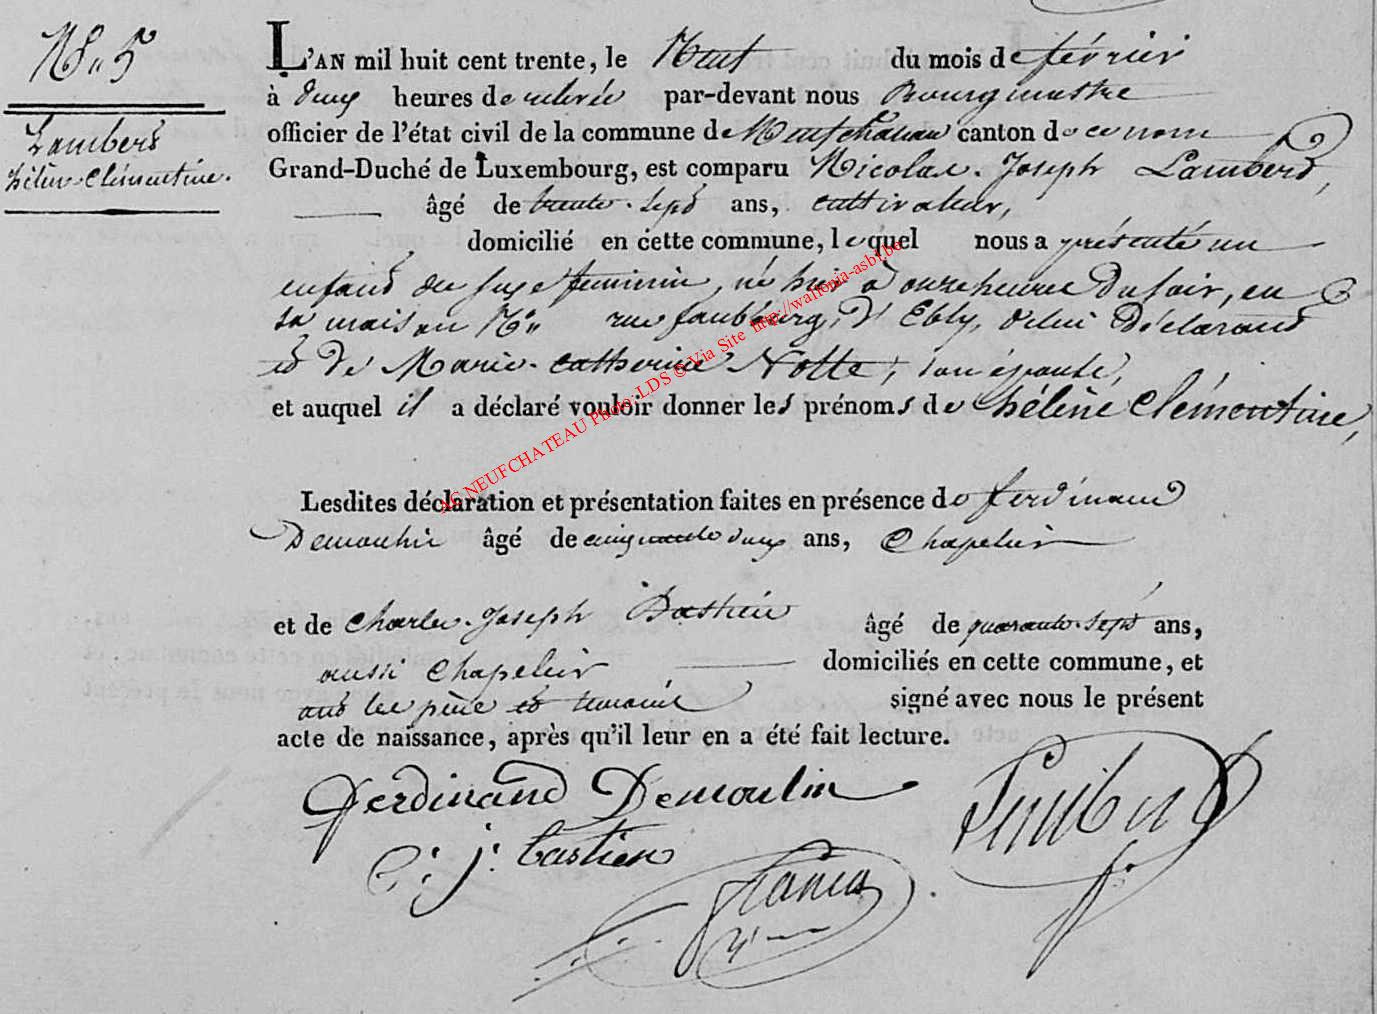 N° 5
Lambert
hélène Clémentine.
L'AN mil huit cent trente, le Neuf du mois de février
à deux heures de relevée par-devant nous Bourgmestre
officier de l'état civil de la commune de Neufchateau canton de ce nom
Grand-Duché de Luxembourg, est comparu Nicolas Joseph Lambert,
âgé de trente-sept ans, cultivateur,
domicilié en cette commune, lequel nous a présenté un
enfant du sexe féminin, né hier à onze heures du soir, en
sa maison N° rue faubourg d'Ebly, de lui Déclarant
et de Marie-catherine Notte, son épouse,
et auquel il a déclaré vouloir donner les prénoms de hélène Clémentine,
Lesdites déclaration et présentation faites en présence de ferdinand
Demoulin âgé de cinquante deux ans, Chapelier
et de Charles-Joseph Bastien âgé de quarante-sept ans,
aussi Chapelier domiciliés en cette commune, et
ont les père et témoins signé avec nous le présent
acte de naissance, après qu'il leur en a été fait lecture.
Ferdinand Demoulin
C: j: bastien
AC NEUFCHATEAU Photo: LDS © Via Site http://wallonia-asbl.be